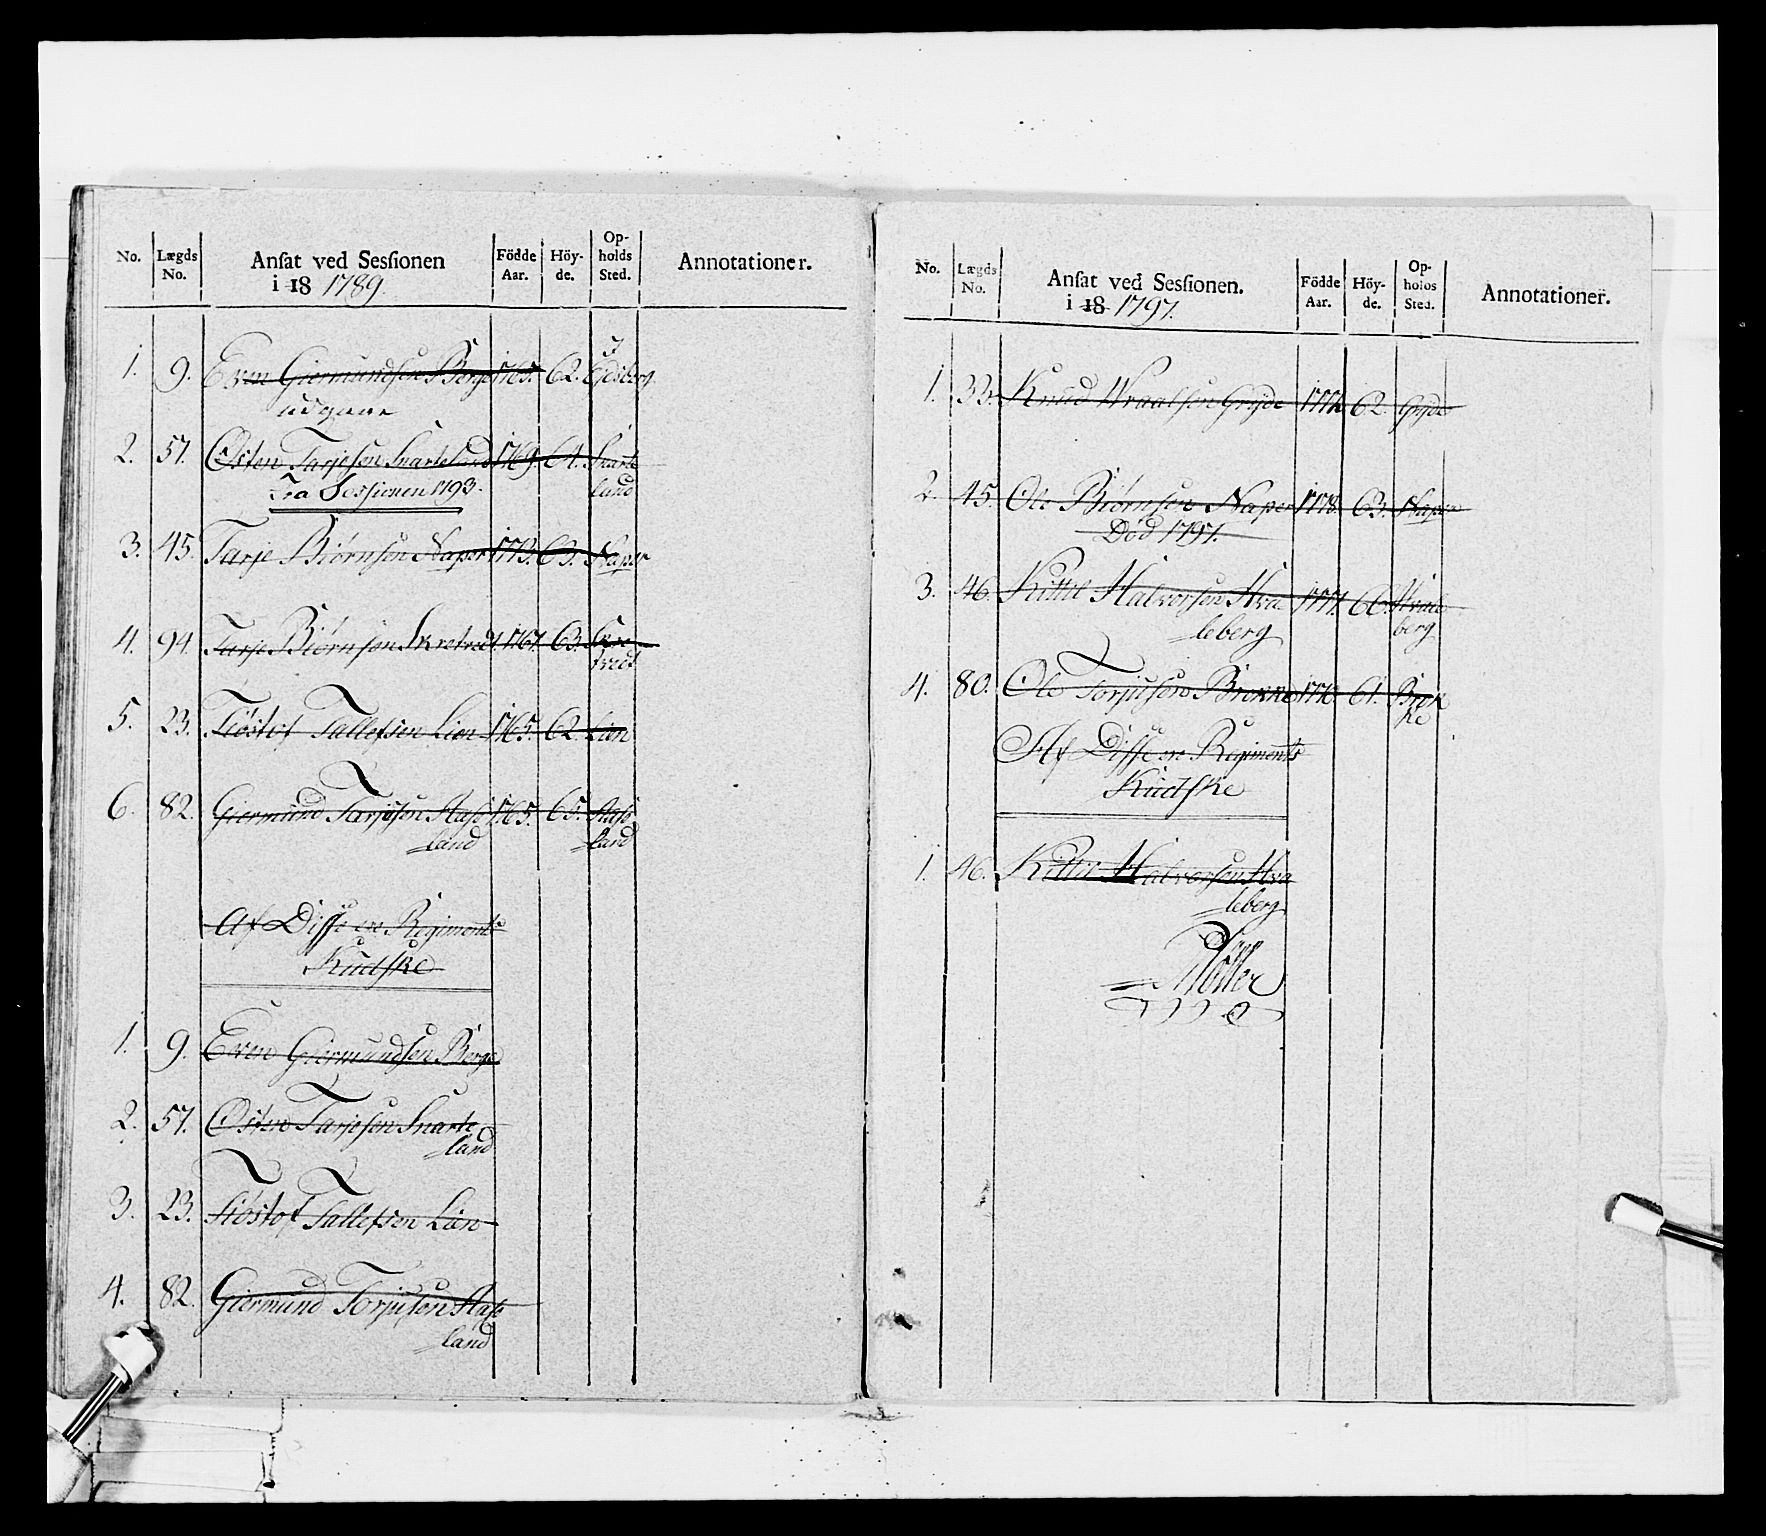 No. Lægds No. Ansat ved Sessionen i 18 1789. Födde Aar. Höyde. Opholds Sted. Annotationer.
1. 9. Even Giermundsen Berge 1765. 62. I Eidsberg
udgaar
2. 57. Østen Tarjesen Snarteland 1769. 64. Snarte
land
fra Sessionen 1793.
3. 45. Tarje Biørnsen Naper 1773. 63. Naper
4. 94. Tarje Biørnsen Skretvedt 1767. 63. Skre
tvedt
5. 23. Tiøstof Tallefsen Lien 1765. 62. Lien
6. 82. Giermund Tarjusen Aase 1765. 65. Aase
land land
Af Disse ere Regiments
Kudske
1. 9. Even Giermundsen Berge
2. 57. Østen Tarjesen Snarte
land
3. 23. Tiøstof Tallefsen Lien
4. 82. Giermund Torjusen Aase
land
No. Lægds No. Ansat ved Sessionen. i 18 1797. Födde Aar. Höyde. Opholos Sted. Annotationer.
1. 33. Knud Wraalsen Gryde 62. Gryde
2. 45. Ole Biørnsen Naper 1778. 63. Naper
Død 1797.
3. 46. Kittil Halvorsen Hva 1777. 60. Hvale
leberg berg
4. 80. Ole Torjusen Brokke 1776. 61. Brok
ke
Af Disse ere Regiments
Kudske
1. 46. Kittil Halvorsen Hva
leberg